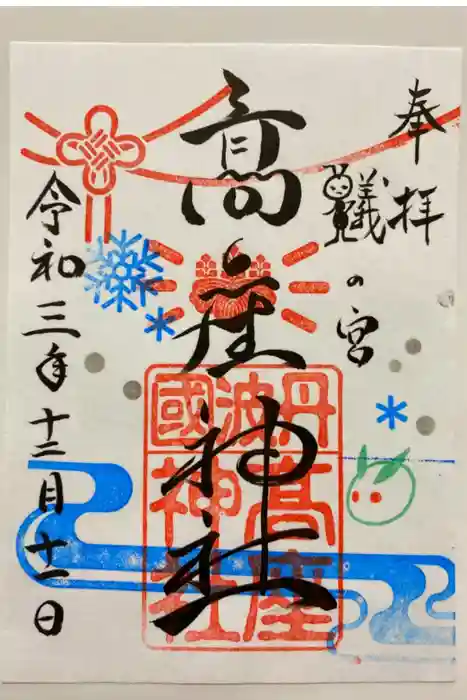 奉拝
蟻の宮
髙座神社
丹波國
髙座
神社
令和三年十二月十二日